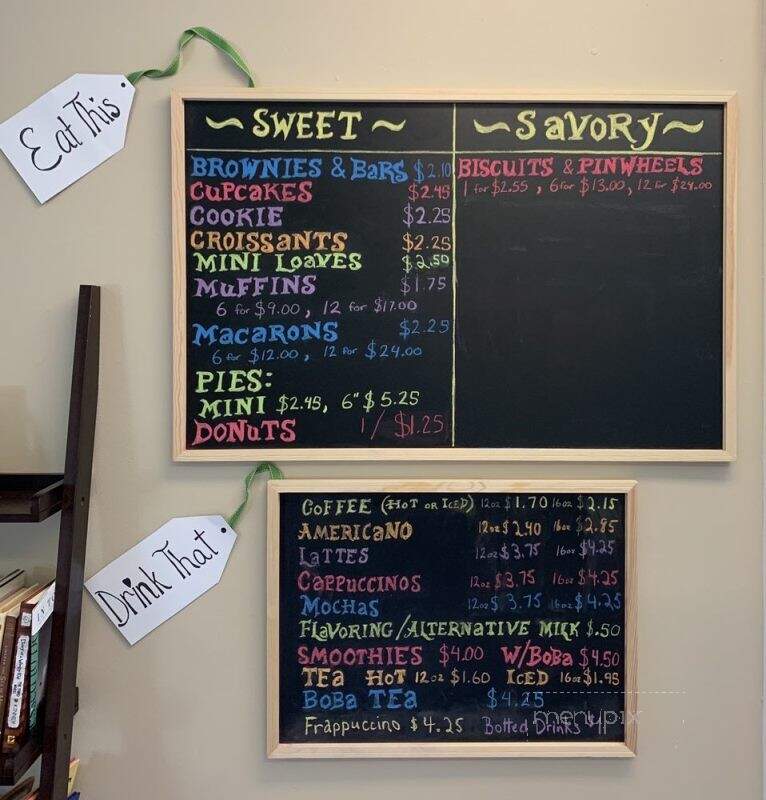 Eat This
~ SWEET ~
BROWNIES & BARS $2.10
CUPCAKES $2.45
COOKIE $2.25
CROISSANTS $2.25
MINI LOAVES $2.50
MUFFINS $1.75
6 for $9.00, 12 for $17.00
MACARONS $2.25
6 for $12.00, 12 for $24.00
PIES:
MINI $2.45, 6" $5.25
DONUTS 1/ $1.25
~ SAVORY ~
BISCUITS & PINWHEELS
1 for $2.55, 6 for $13.00, 12 for $24.00
Drink That
COFFEE (HOT OR ICED) 12oz $1.70 16oz $2.15
AMERICANO 12oz $2.40 16oz $2.85
LATTES 12oz $3.75 16oz $4.25
CAPPUCCINOS 12oz $3.75 16oz $4.25
MOCHAS 12oz $3.75 16oz $4.25
FLAVORING/ALTERNATIVE MILK $.50
SMOOTHIES $4.00 W/BOBA $4.50
TEA HOT 12oz $1.60 ICED 16oz $1.95
BOBA TEA $4.25
Frappuccino $4.25 Botted Drinks
menupix